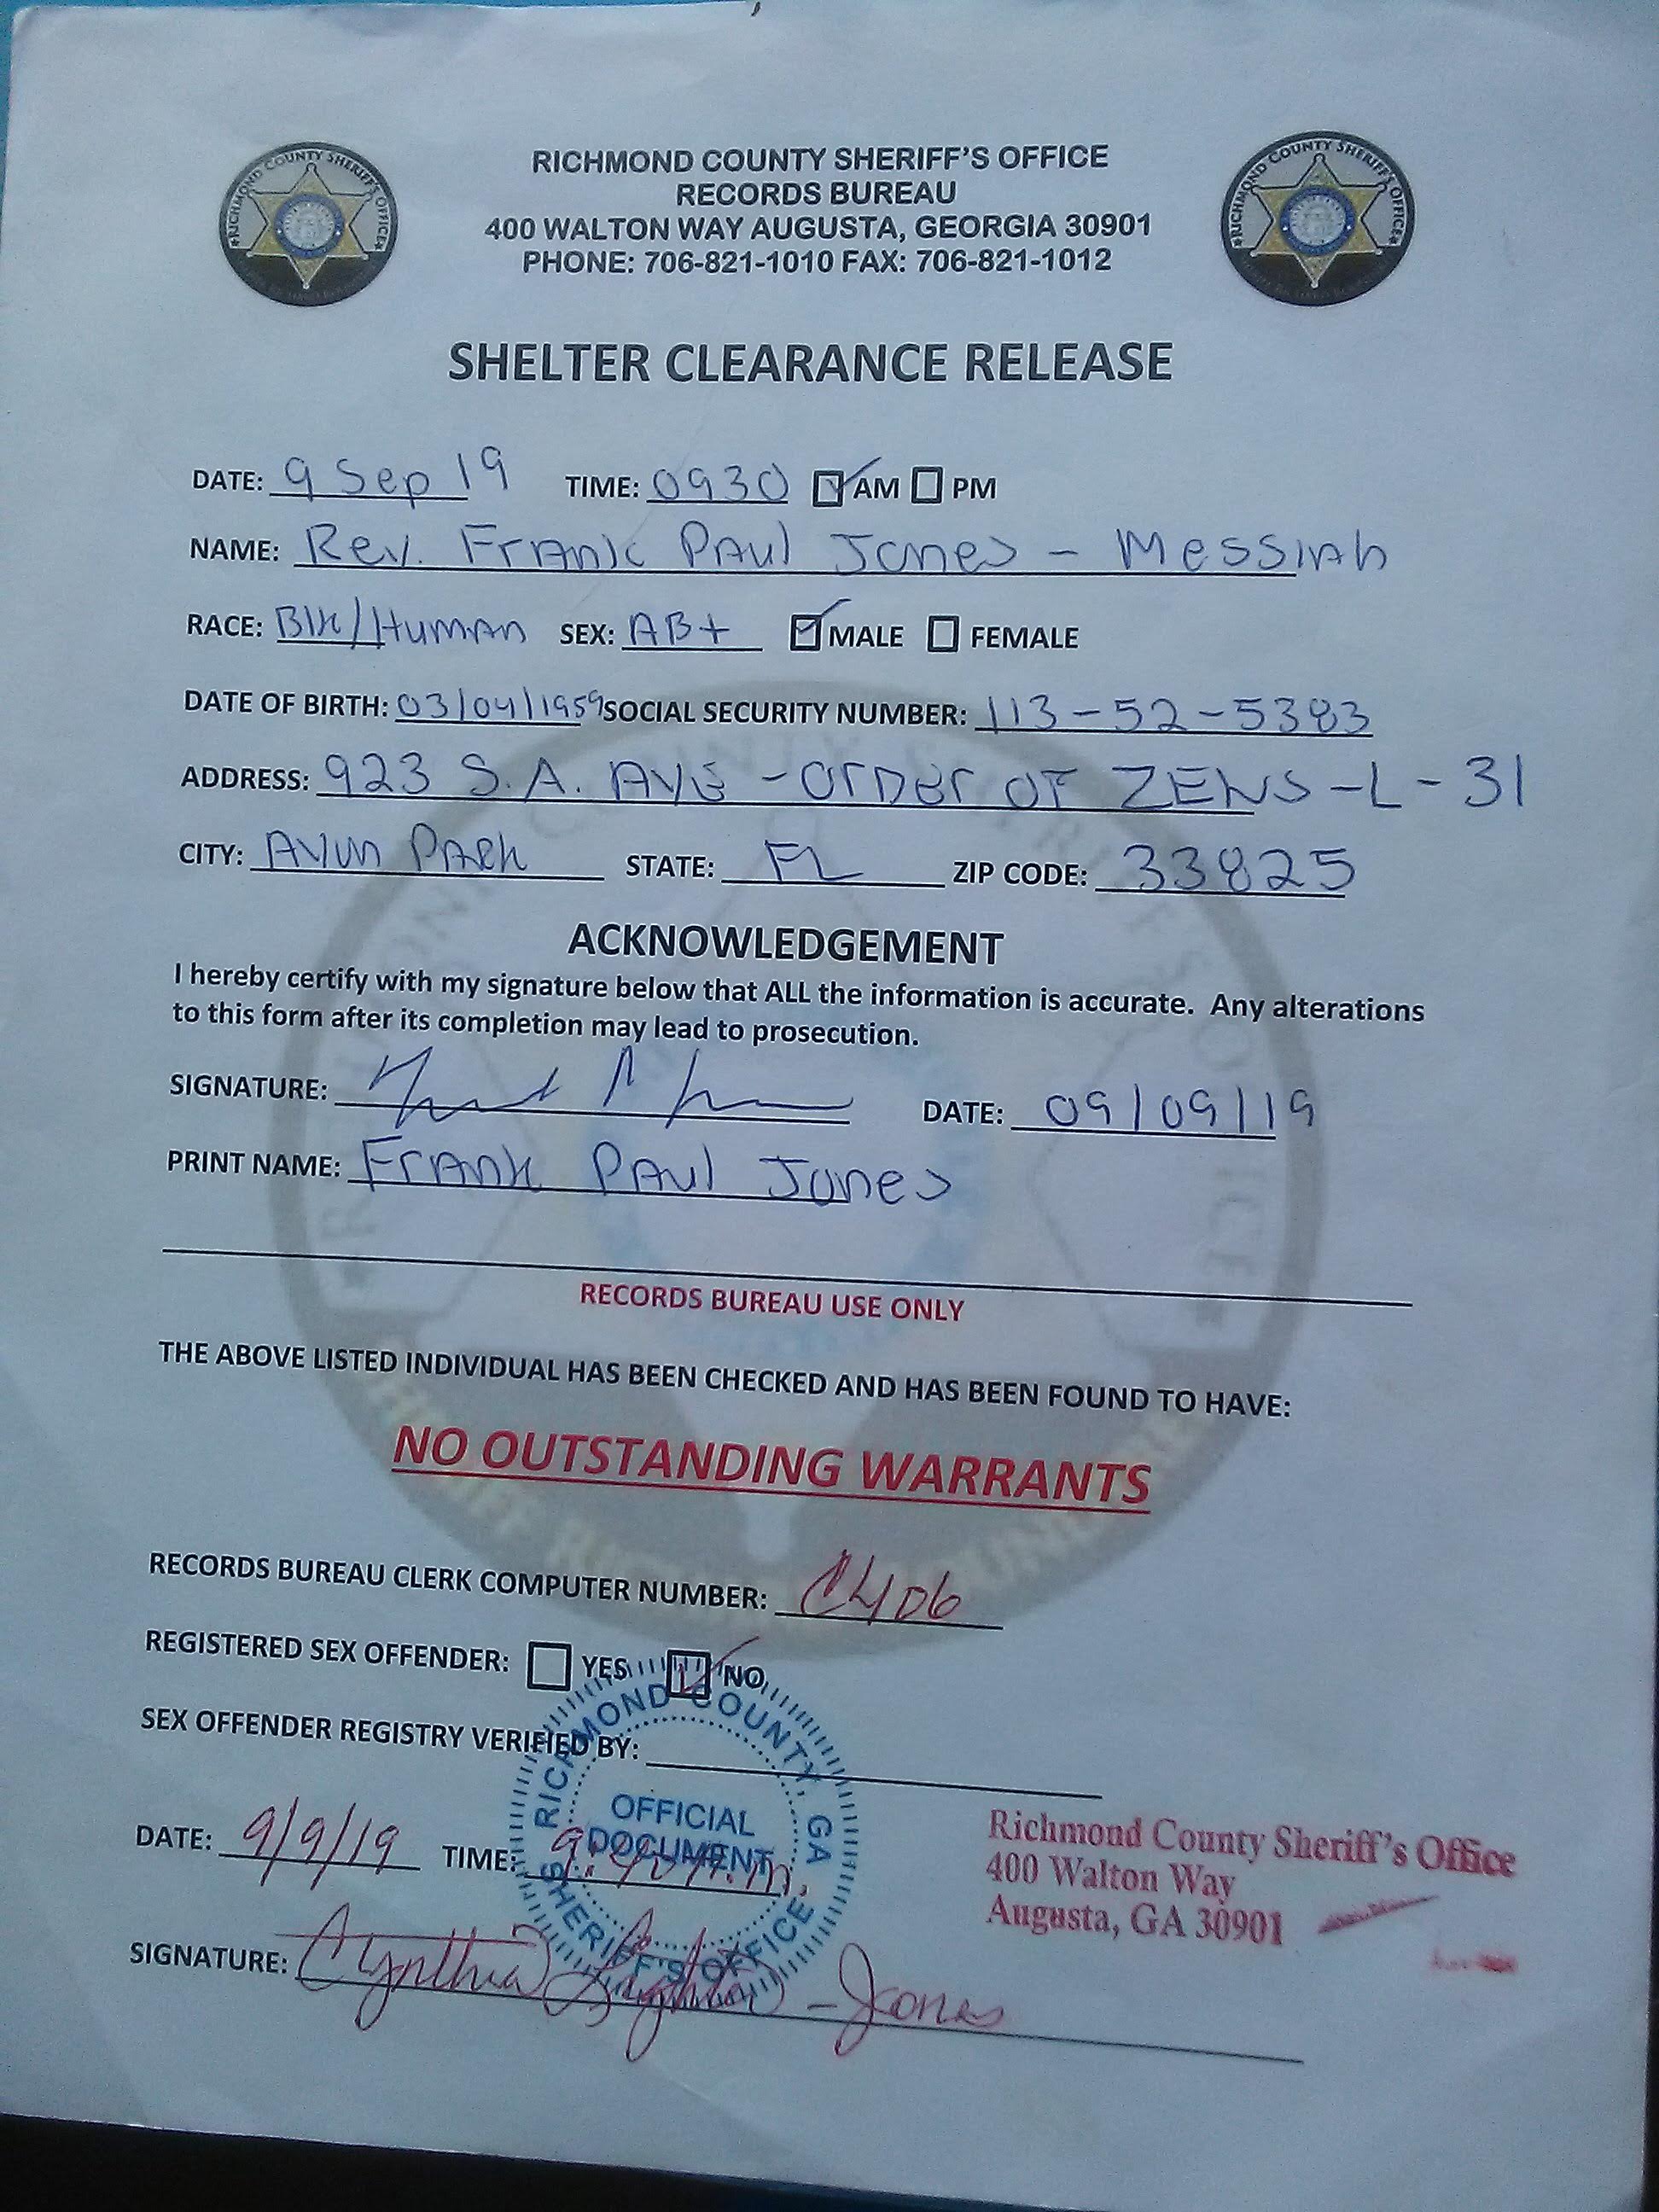 RICHMOND COUNTY SHERIFF'S OFFICE
RECORDS BUREAU
400 WALTON WAY AUGUSTA, GEORGIA 30901
PHONE: 706-821-1010 FAX: 706-821-1012
SHELTER CLEARANCE RELEASE
DATE: 9 Sep 19 TIME: 0930 AM PM
NAME: Rev. Frank Paul Jones - Messiah
RACE: Blk/Human SEX: AB+ MALE FEMALE
DATE OF BIRTH: 03/04/1959 SOCIAL SECURITY NUMBER: 113-52-5383
ADDRESS: 923 S. A. AVE - Order OF ZENS - L - 31
CITY: Avon Park STATE: FL ZIP CODE: 33825
ACKNOWLEDGEMENT
I hereby certify with my signature below that ALL the information is accurate. Any alterations
to this form after its completion may lead to prosecution.
SIGNATURE: DATE: 09/09/19
PRINT NAME: Frank Paul Jones
RECORDS BUREAU USE ONLY
THE ABOVE LISTED INDIVIDUAL HAS BEEN CHECKED AND HAS BEEN FOUND TO HAVE:
NO OUTSTANDING WARRANTS
RECORDS BUREAU CLERK COMPUTER NUMBER: C406
REGISTERED SEX OFFENDER: YES NO
SEX OFFENDER REGISTRY VERIFIED BY:
RICHMOND COUNTY, GA
OFFICIAL
DOCUMENT
SHERIFF'S OFFICE
DATE: 9/9/19 TIME:
Richmond County Sheriff's Office
400 Walton Way
Augusta, GA 30901
SIGNATURE: Cynthia - Jones